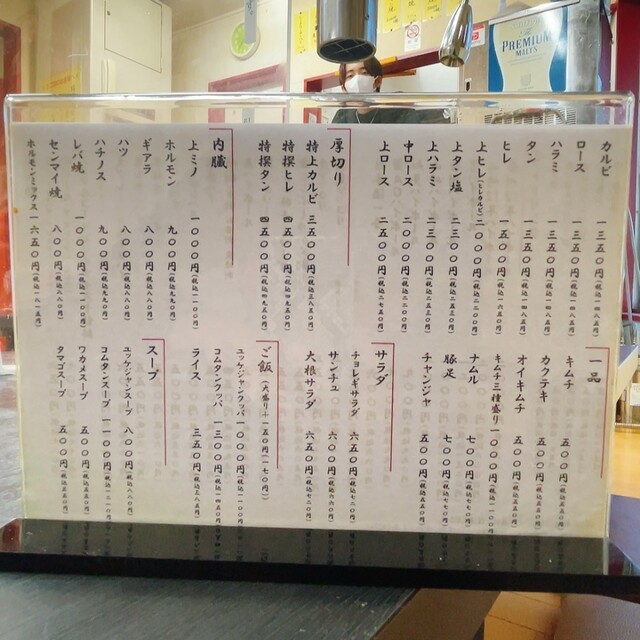 カルビ 一三五〇円(税込一四八五円)
ロース 一三五〇円(税込一四八五円)
ハラミ 一三五〇円(税込一四八五円)
タン 一三五〇円(税込一四八五円)
ヒレ 一五〇〇円
上ヒレ(ヒレカルビ) 二〇〇〇円(税込二二〇〇円)
上タン塩 二三〇〇円(税込二五三〇円)
上ハラミ 二三〇〇円(税込二五三〇円)
中ロース 二〇〇〇円(税込二二〇〇円)
上ロース 二五〇〇円(税込二七五〇円)
厚切り
特上カルビ 三五〇〇円(税込三八五〇円)
特撰ヒレ 四五〇〇円(税込四九五〇円)
特撰タン 四五〇〇円(税込四九五〇円)
内臓
上ミノ 一〇〇〇円(税込一一〇〇円)
ホルモン 九〇〇円(税込九九〇円)
ギアラ 八〇〇円(税込八八〇円)
ハツ 八〇〇円(税込八八〇円)
ハチノス 九〇〇円(税込九九〇円)
レバ焼 一〇〇〇円(税込一一〇〇円)
センマイ焼 八〇〇円(税込八八〇円)
ホルモンミックス 一六五〇円(税込一八一五円)
一品
キムチ 五〇〇円(税込五五〇円)
カクテキ 五〇〇円(税込五五〇円)
オイキムチ 五〇〇円(税込五五〇円)
キムチ三種盛り 一〇〇〇円(税込一一〇〇円)
ナムル 七〇〇円(税込七七〇円)
豚足 七〇〇円(税込七七〇円)
チャンジャ 五〇〇円(税込五五〇円)
サラダ
チョレギサラダ 六五〇円(税込七一五円)
サンチュ 六〇〇円(税込六六〇円)
大根サラダ 六五〇円(税込七一五円)
ご飯(大盛り+一五〇円)
ユッケジャンクッパ 一〇〇〇円(税込一一〇〇円)
コムタンクッパ 一三〇〇円(税込一四三〇円)
ライス 三五〇円(税込三八五円)
スープ
ユッケジャンスープ 八〇〇円(税込八八〇円)
コムタンスープ 一一〇〇円
ワカメスープ 五〇〇円(税込五五〇円)
タマゴスープ 五〇〇円(税込五五〇円)
THE PREMIUM MALT'S